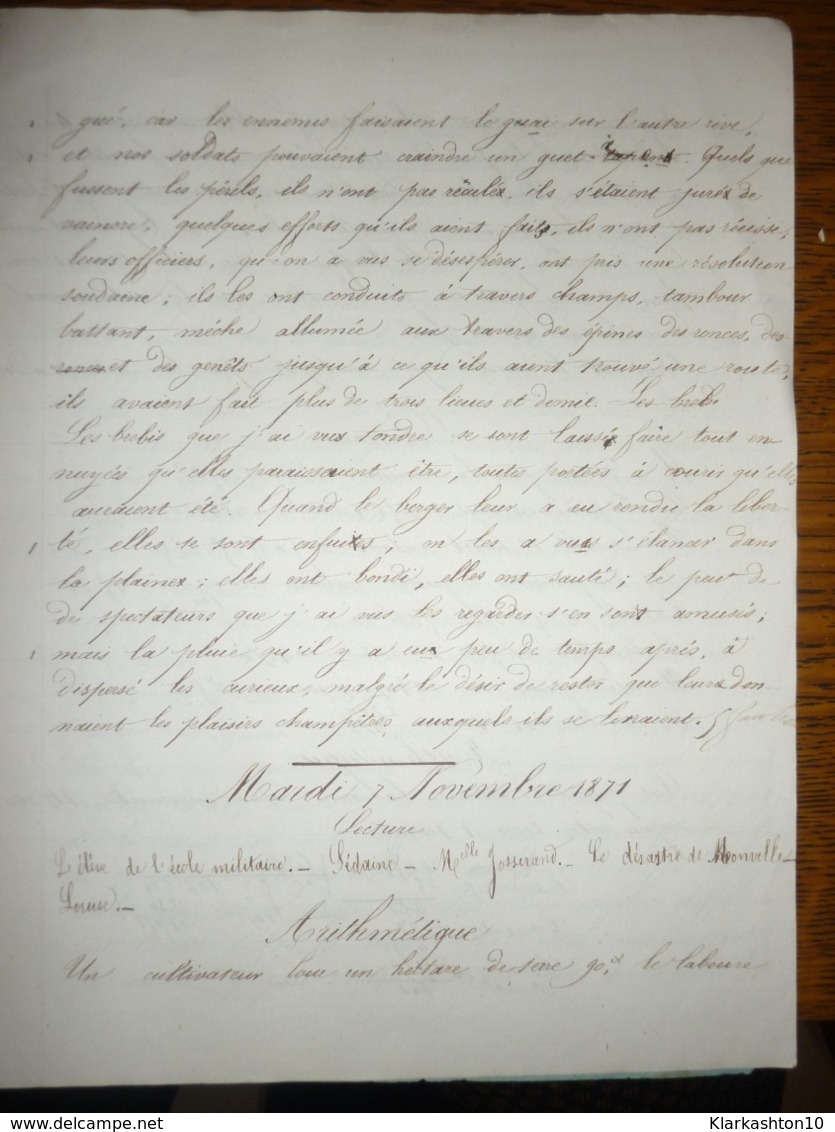 gué, car les ennemis faisaient le guai sur l'autre rive,
et nos soldats pouvaient craindre un guet-apens. Quels que
fussent les périls, ils n'ont pas reculé, ils s'étaient jurés de
vaincre, quelques efforts qu'ils aient faits, ils n'ont pas réussi,
leurs officiers, qu'on a vus se désespérer, ont pris une résolution
soudaine; ils les ont conduits à travers champs, tambour
battant, mèche allumée aux travers des épines des ronces, des
et des genêts jusqu'à ce qu'ils aient trouvé une route,
ils avaient fait plus de trois lieues et demie. Les breb
Les brebis que j'ai vus tondre se sont laissé faire tout en
nuyés qu'elles paraissaient être, toutes portées à courir qu'elles
auraient été. Quand le berger leur a eu rendu la liber-
té, elles se sont enfuies; on les a vus s'élancer dans
la plaine; elles ont bondi, elles ont sauté; le peu de
de spectateurs que j'ai vus les regarder s'en sont amusés;
mais la pluie qu'il y a eu peu de temps après, à
dispersé les curieux, malgré le désir de rester que leurs don
naient les plaisirs champêtres auxquels ils se livraient. 5
Mardi 7 Novembre 1871
Lecture
L'élève de l'école militaire. _ Sédaine _ Melle Josserand. _ Le désastre de Monville _
Louise. _
Arithmétique
Un cultivateur loue un hectare de terre 90, le laboure
Klarkashton10